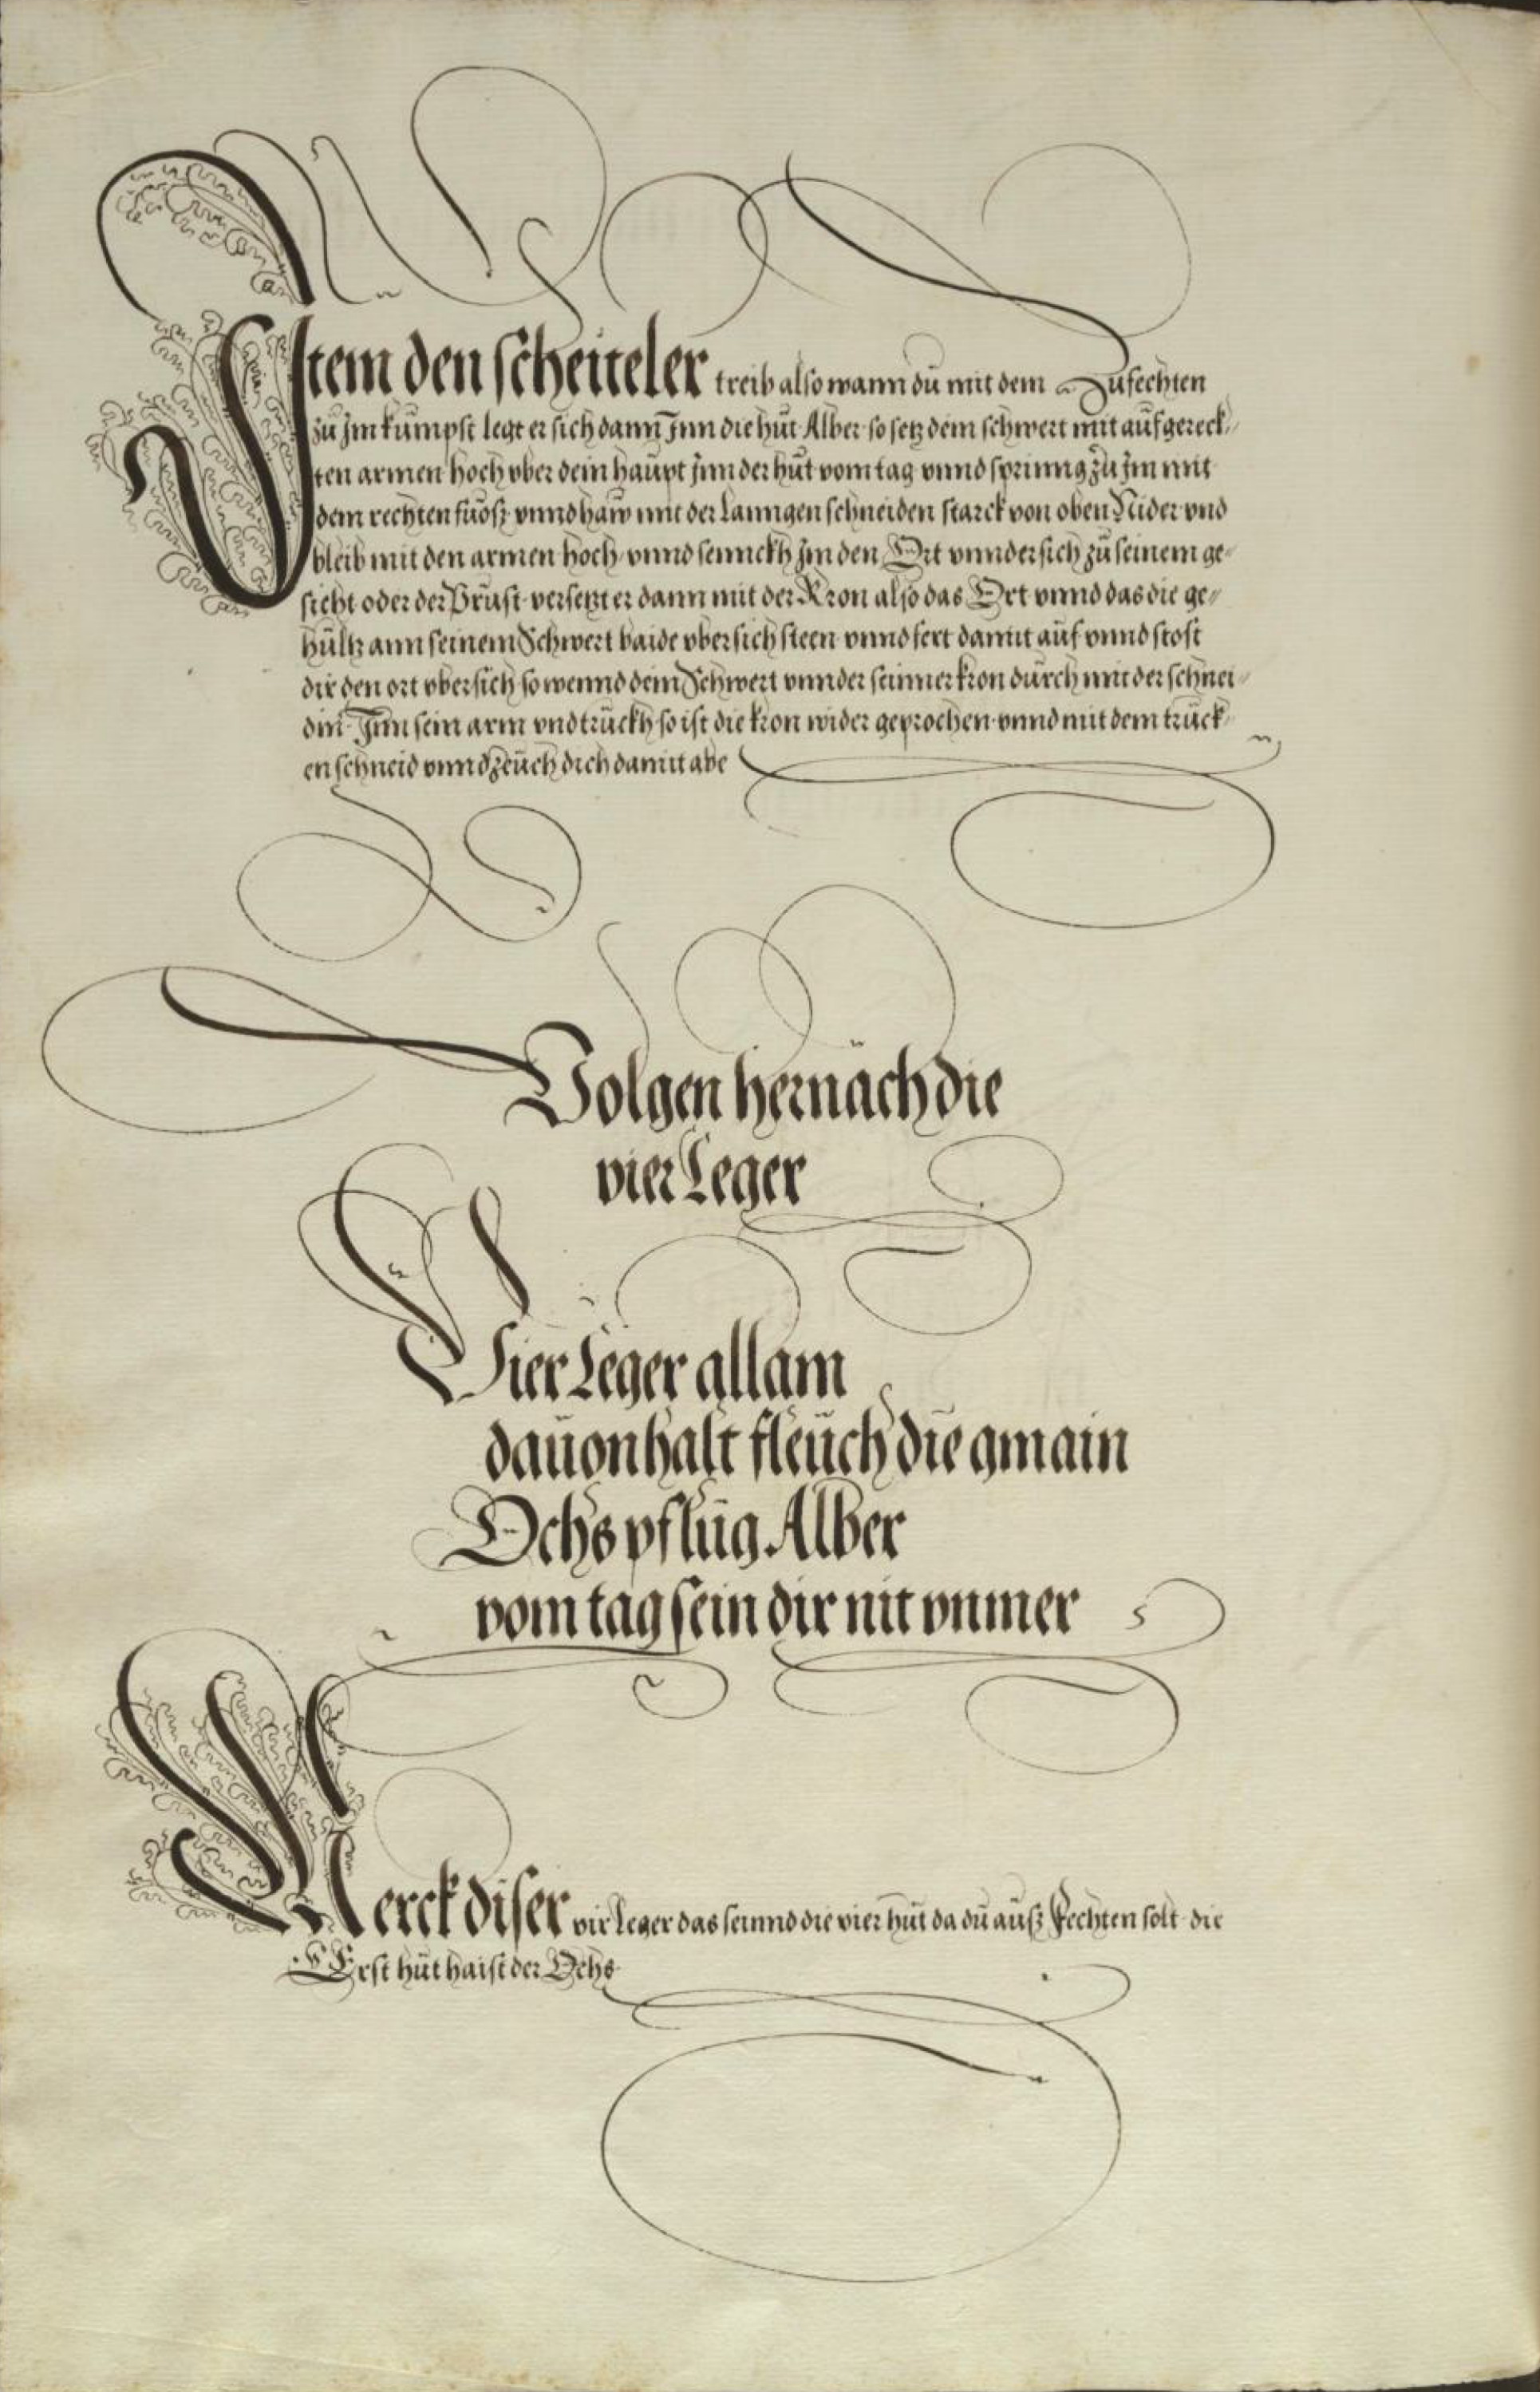 Item den scheiteler treib also wann dü mit dem Zufechten
zü Jm kümpst legt er sich dann Jnn die hüt Alber so setz dein schwert mit aüfgereck„
ten armen hoch vber dein haüpt Jnn der hüt vom tag vnnd sprinng zü Jm mit
dem rechten füosz vnnd haw mit der lanngen schneiden starck von oben Nider vnd
bleib mit den armen hoch vnnd sennckh Jm den Ort vnndersich zü seinem ge„
sicht oder der Brüst versetzt er dann mit der Kron also das Ort vnnd das die ge„
hültz ann seinem Schwert baide vbersich steen vnnd fert damit aüf vnnd stost
dir den ort vbersich so wennd dein Schwert vnnder seinner kron dürch mit der schnei„
din Jnn sein arm vnd trückh so ist die kron wider geprochen vnnd mit dem trück„
en schneid vnnd zeüch dich damit abe
Volgen hernach die
vier Leger
Vier Leger allain
daüon halt fleüch die gmain
Ochs pflüg Alber
vom tag sein dir nit vnmer
Merck diser vir Leger das seinnd die vier hüt da dü aüsz Fechten solt die
Erst hüt haist der Ochs